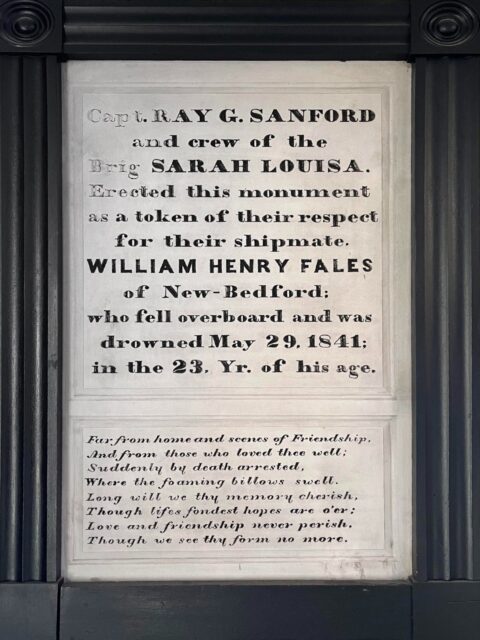 Capt. RAY G. SANFORD
and crew of the
Brig SARAH LOUISA.
Erected this monument
as a token of their respect
for their shipmate.
WILLIAM HENRY FALES
of New-Bedford;
who fell overboard and was
drowned May 29, 1841;
in the 23, Yr. of his age.
Far from home and scenes of Friendship,
And from those who loved thee well;
Suddenly by death arrested,
Where the foaming billows swell.
Long will we thy memory cherish,
Though lifes fondest hopes are o'er;
Love and friendship never perish,
Though we see thy form no more.